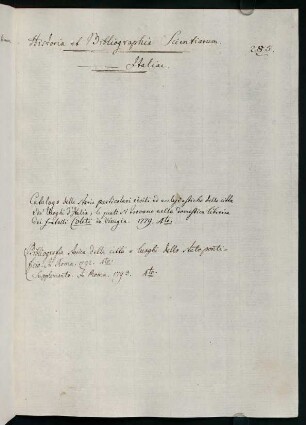 Historia et Bibliographia Scientiarum
285.
Italiae.
Catalogo delle Storie particolari civili ed ecclesiastiche delle città
e de' luoghi d'Italia, le quali si trovano nella domestica libreria
dei fratelli Coleti in Vinegia. 1779. 4to.
Bibliografia Storica delle città e luoghi dello Stato ponti-
ficio. In Roma. 1792. 4to.
Supplemento. In Roma. 1793. 4to.